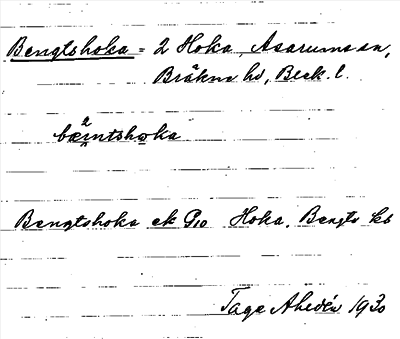 Bengtshoka = 2 Hoka, Asarums sn,
Bräkne hd, Blek. l.
bæ2ntshoka
Bengtshoka ek G10 Hoka. Bengts kb
Tage Ahldén 1930